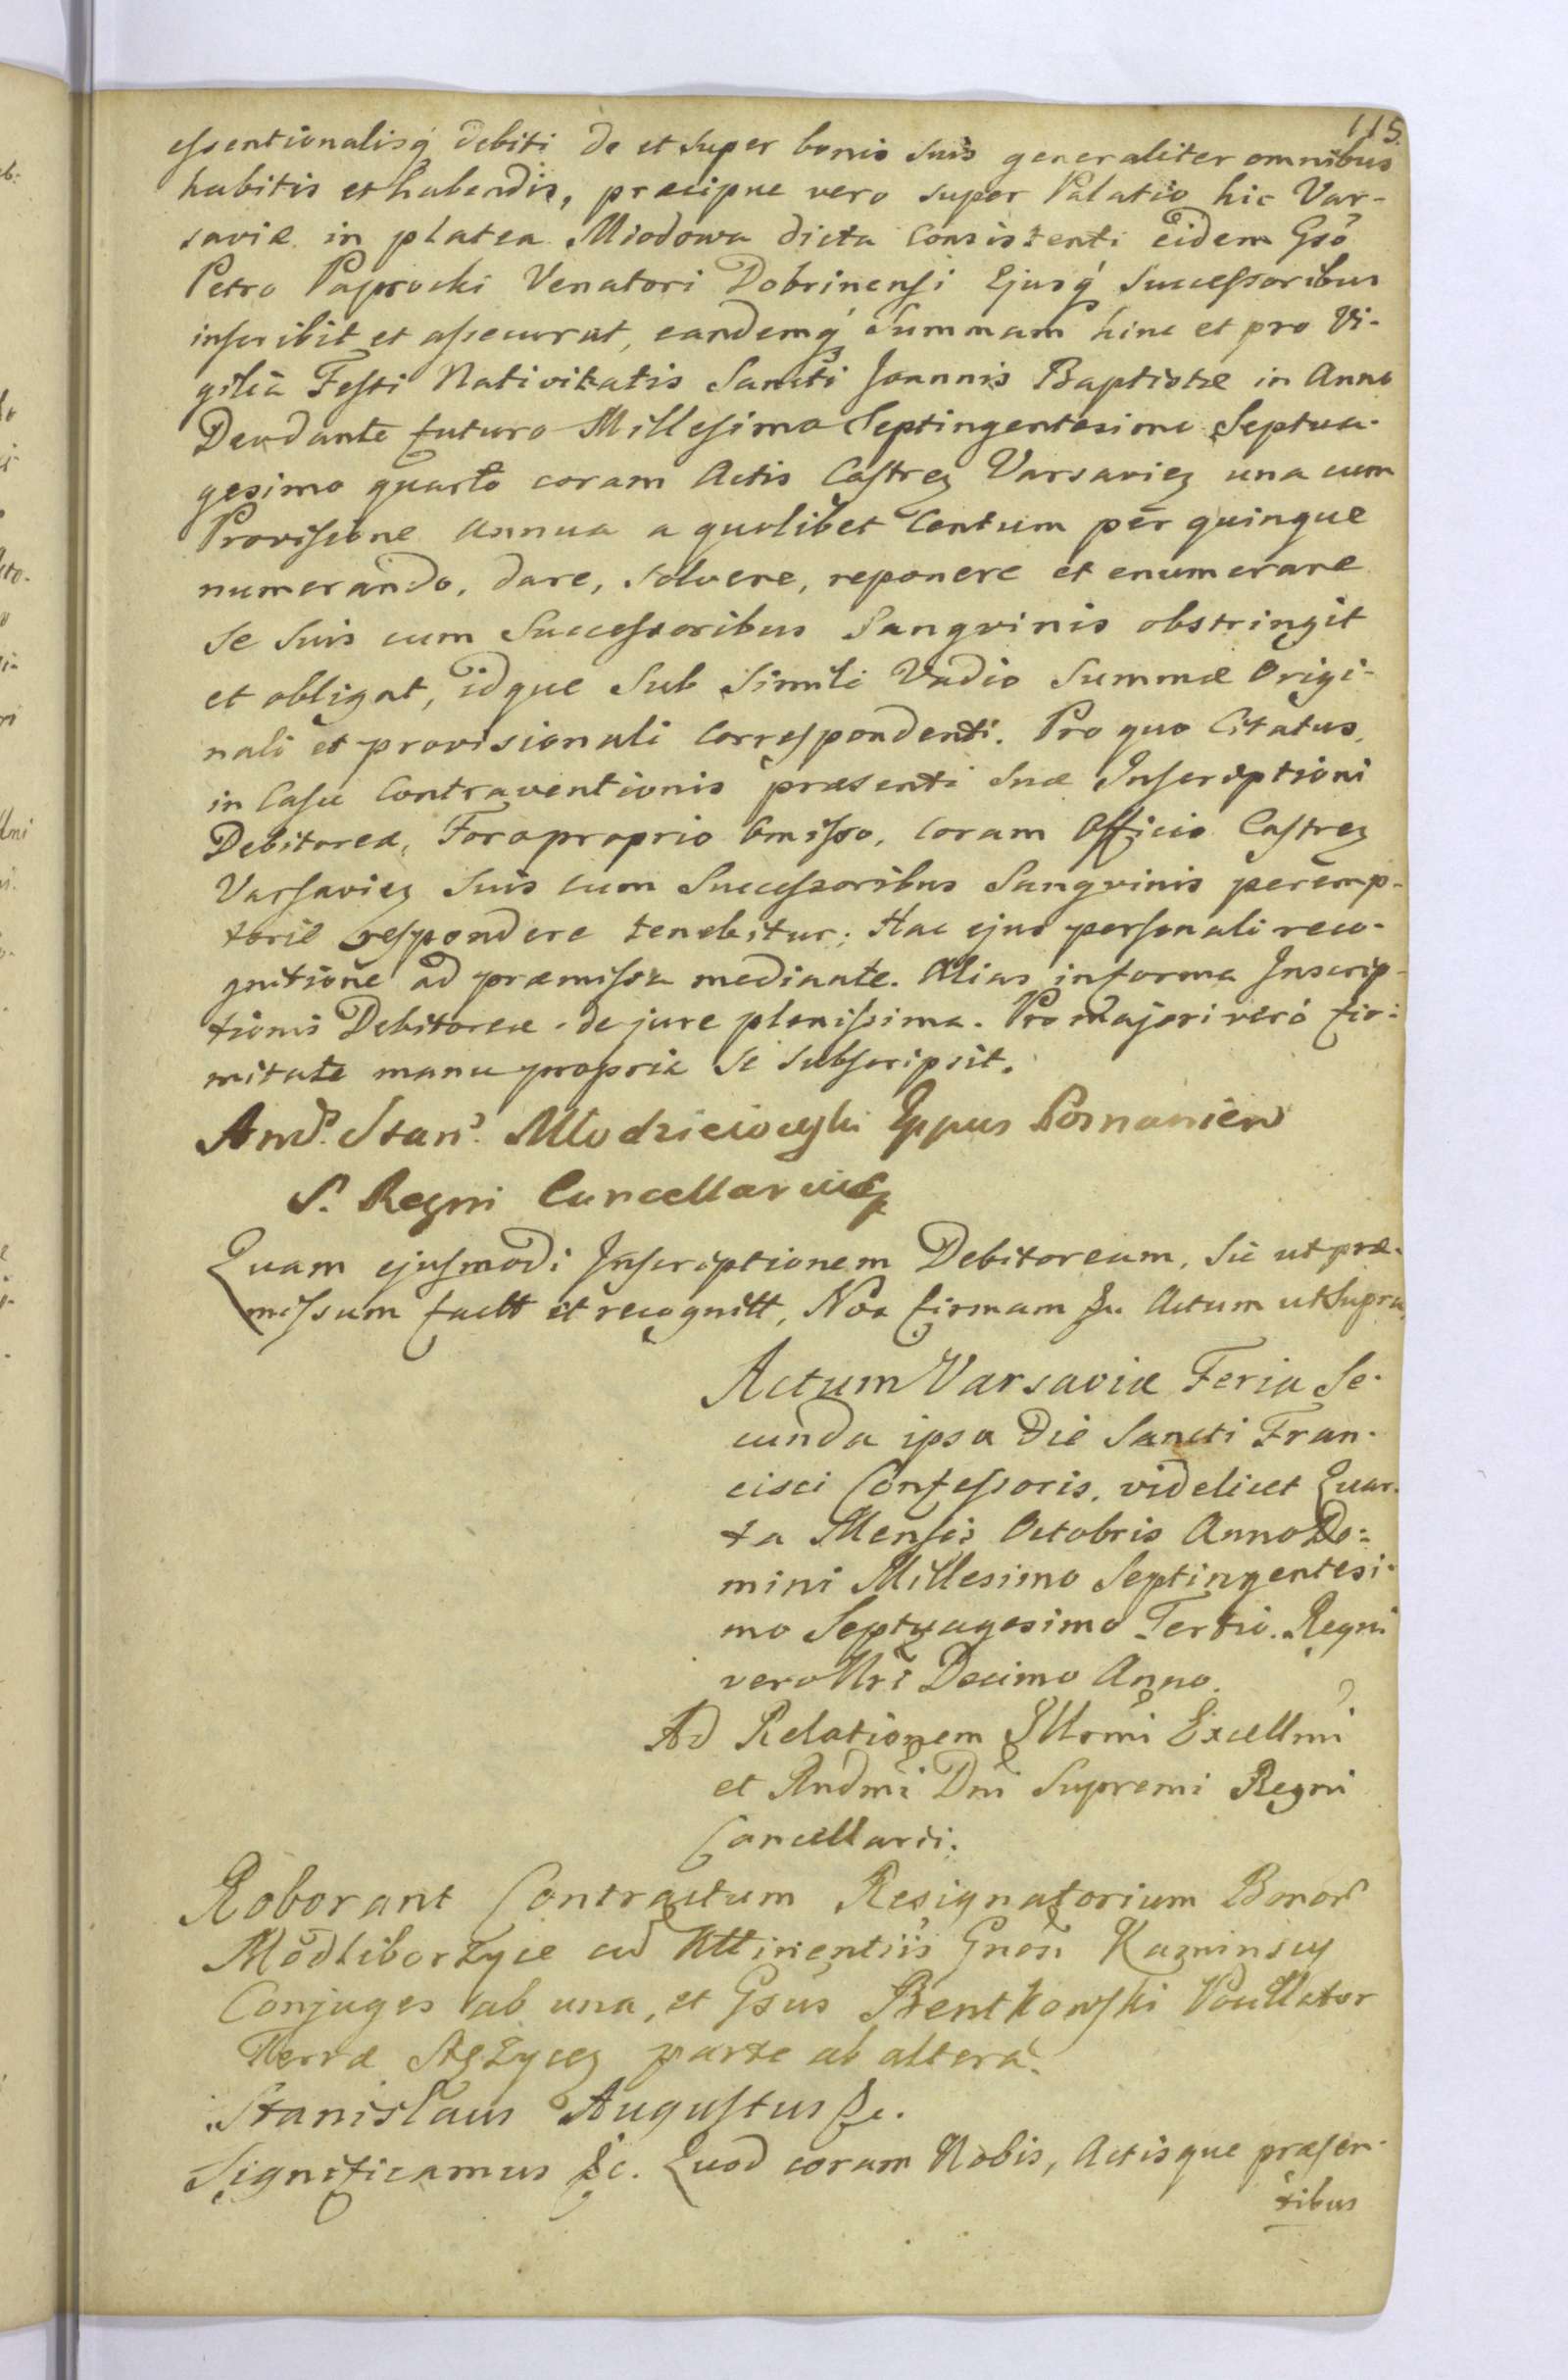 115.
essentionalisq́ debiti de et super bonis suis generaliter omnibus
habitis et habendis, præcipue vero super Palatio hic Var-
saviæ in platea Miodowa dicta consistenti eidem Gsō
Petro Paprocki Venatori Dobrinensi Ejusq́ Successoribus
inscribit et assecurat, eandemq́ Summam hinc et pro Vi-
giliā Festi Nativitatis Sancti Joannis Baptistæ in Anno
Deodante futuro Millesimo Septingentesimo Septua-
gesimo quarto coram Actis Castreꝫ Varsavieꝫ una cum
Provisione annua a quolibet Centum per quinque
numerando, dare, solvere, reponere et enumerare
se suis cum Successoribus Sangvinis obstringit
et obligat, idque sub simili Vadio Summæ Origi-
nali et provisionali correspondenti. Pro quo Citatus,
in Casu Contraventionis præsenti suæ Inscriptioni
Debitoreæ, Foro proprio omisso, coram Officio Castreꝫ
Varsavieꝫ suis cum Successoribus Sangvinis peremp-
torie respondere tenebitur; Hac ejus personali reco-
gnitione ad præmissa mediante. Alias in forma Inscrip-
tionis Debitoreæ de jure plenissima. Pro majori veró fir-
mitate manu propria se subscripsit.
Andꝰ. Stanꝰ. Młodzieiowski Eppus Posnanien
S. Regni Cancellarius
Quam ejusmodi Inscriptionem Debitoream, sic ut præ-
missum factt et recognitt, Nos firmam &c. Actum ut supra.
Actum Varsaviæ Feria Se-
cunda ipsa die Sancti Fran-
cisci Confessoris, videlicet Quar-
ta Mensis Octobris Anno Do-
mini Millesimo Septingentesi-
mo Septuagesimo Tertio. Regni
vero Nri Decimo Anno.
Ad Relationem Illrmi Excellmi
et Rndmi Dni Supremi Regni
Cancellarii.
Roborant Contractum Resignatorium Bonor
Modliborzyce cū Attinentiis Gnosi Kaminscy
Conjuges ab una, et Gsus Bentkowski
Terræ parte ab altera.
Stanislaus Augustus &c.
Significamus &c. Quod coram Nobis, Actisque præsen-
tibus